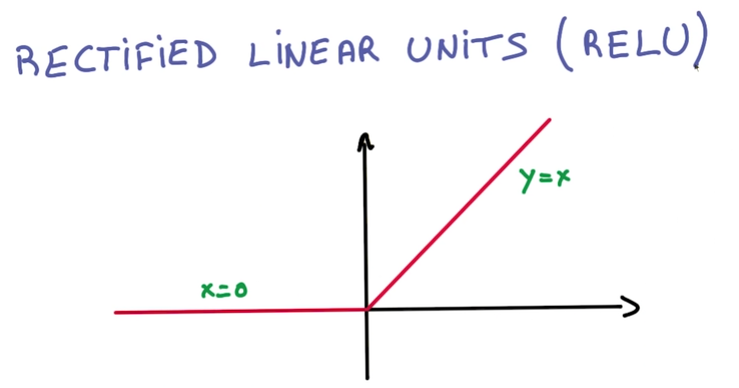 RECTIFIED LINEAR UNITS (RELU)
y=x
x=0